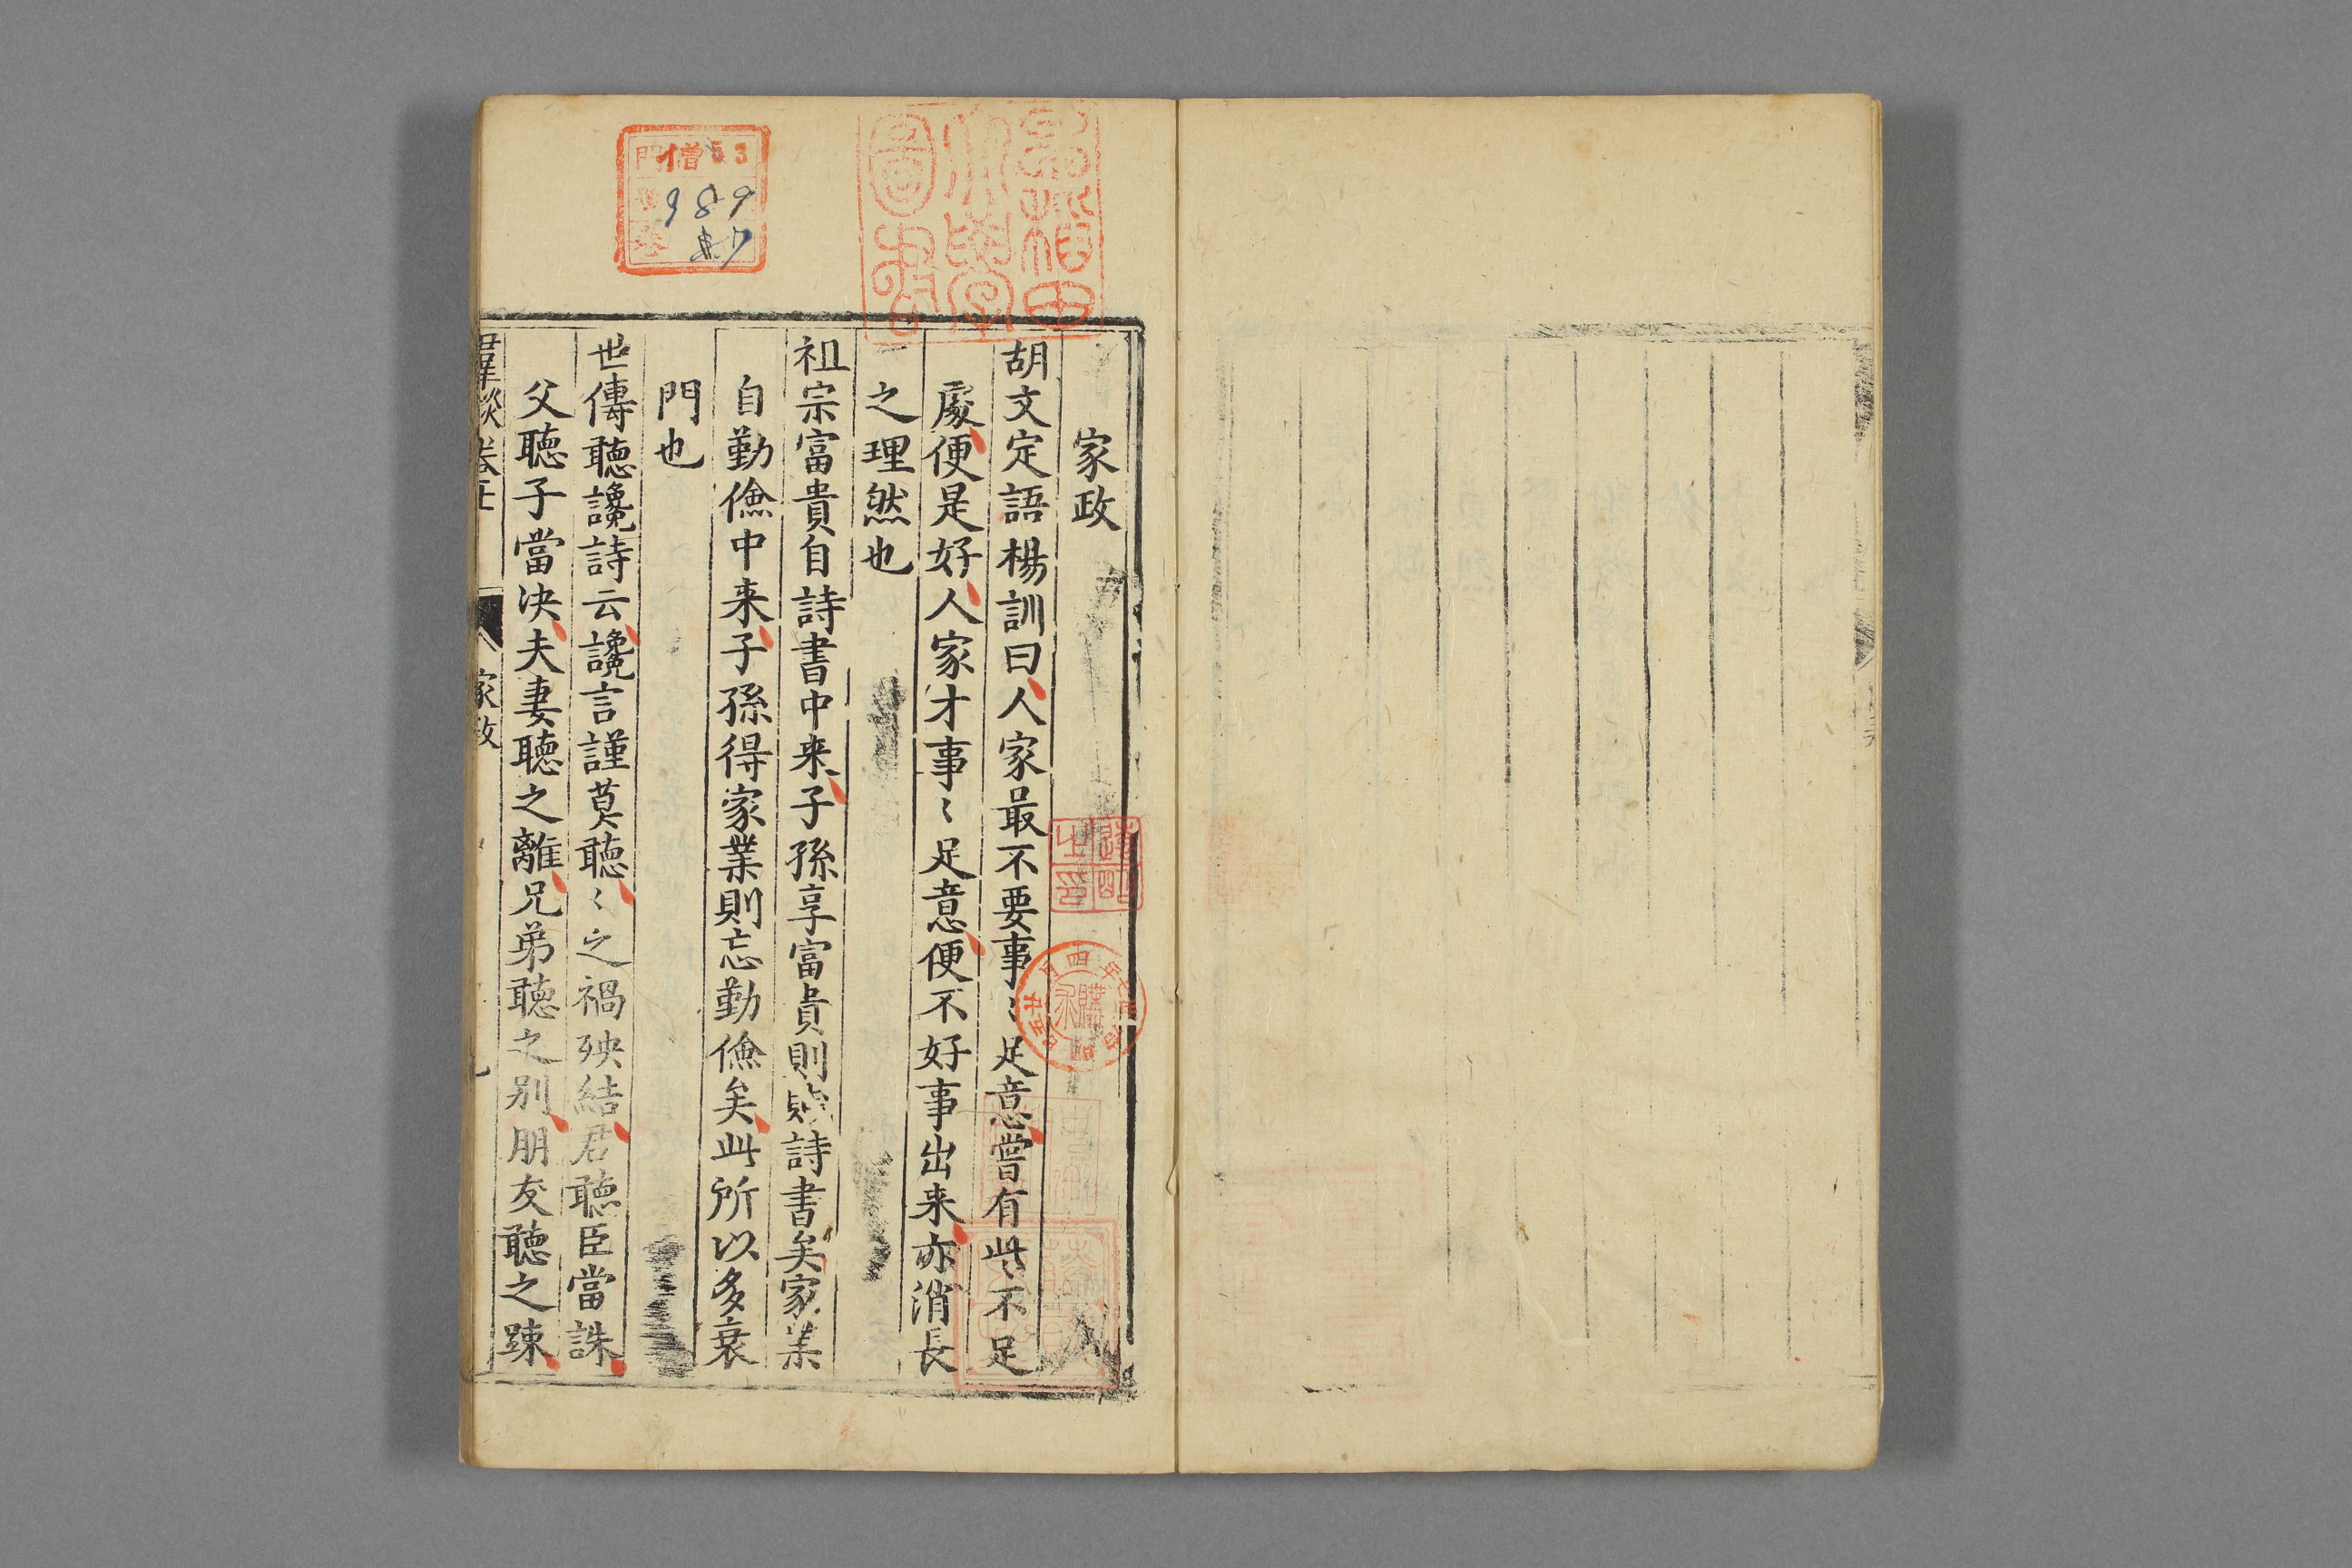 家政
胡文定語楊訓曰人家最不要事〻足意嘗有此不足
處便是好人家才事〻足意便不好事出来亦消長
之理然也
祖宗富貴自詩書中来子孫享富貴則賤詩書矣家業
自勤儉中来子孫得家業則忘勤儉矣此所以多衰
門也
世傳聽讒詩云讒言謹莫聽〻之禍殃結君聽臣當誅
父聽子當决夫妻聽之離兄弟聽之别朋友聽之踈
家政
早稲田大學圖書
門 僧 53
989
7